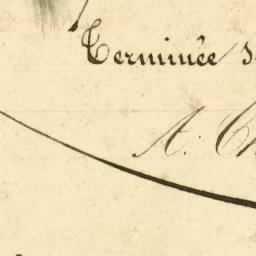 Terminée
A. Ch